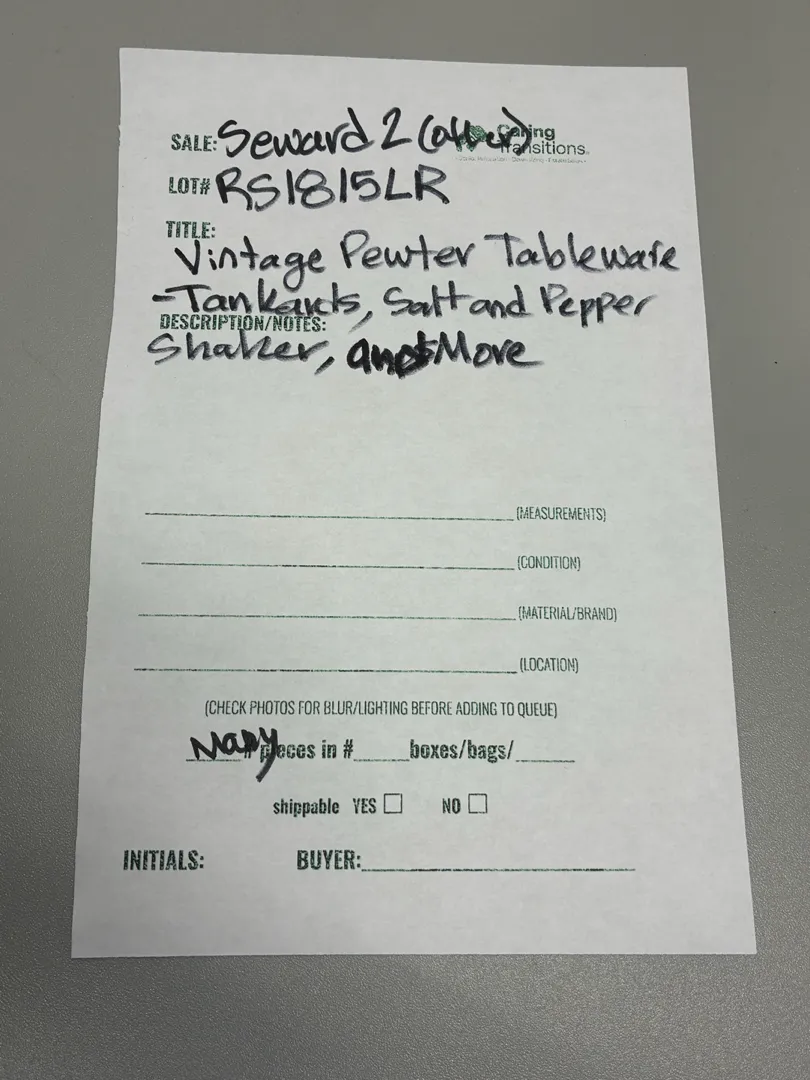 SALE: Seward 2 (other)
Caring Transitions
LOT# RS1815LR
TITLE:
Vintage Pewter Tableware
-Tankards, Salt and Pepper
DESCRIPTION/NOTES:
Shaker, and More
(MEASUREMENTS)
(CONDITION)
(MATERIAL/BRAND)
(LOCATION)
(CHECK PHOTOS FOR BLUR/LIGHTING BEFORE ADDING TO QUEUE)
Many # pieces in # boxes/bags/
shippable YES NO
INITIALS: BUYER: